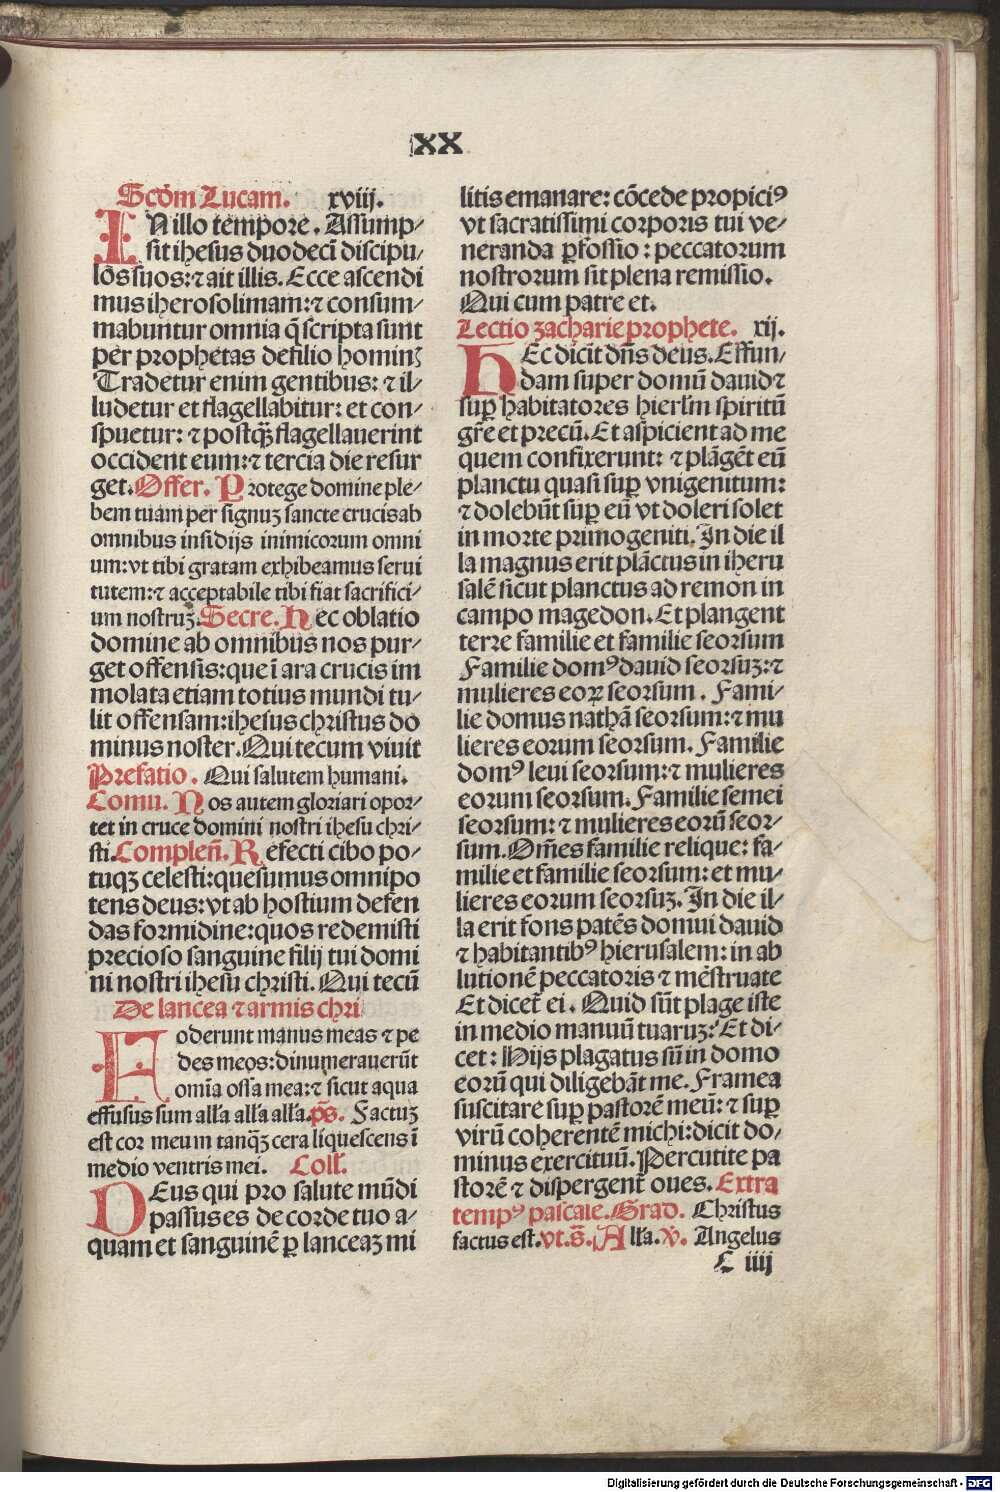 XX
Scd̄m Lucam. xviij.
IN illo tempore. Assump-
sit ihesus duodecī discipu-
los suos: ⁊ ait illis. Ecce ascendi
mus iherosolimam: ⁊ consum-
mabuntur omnia q̄ scripta sunt
per prophetas de filio hominꝫ
Tradetur enim gentibus: ⁊ il-
ludetur et flagellabitur: et con-
spuetur: ⁊ postqꝫ̄ flagellauerint
occident eum: ⁊ tercia die resur
get. Offer. Protege domine ple-
bem tuam per signuꝫ sancte crucis ab
omnibus insidijs inimicorum omni
um: vt tibi gratam exhibeamus serui
tutem: ⁊ acceptabile tibi fiat sacrifici-
um nostruꝫ. Secre. Hec oblatio
domine ab omnibus nos pur-
get offensis: que ī ara crucis im
molata etiam totius mundi tu-
lit offensam: ihesus christus do
minus noster. Qui tecum viuit
Prefatio. Qui salutem humani.
Comu. Nos autem gloriari opor-
tet in cruce domini nostri ihesu chri-
sti. Compleñ. Refecti cibo po-
tuqꝫ celesti: quesumus omnipo
tens deus: vt ab hostium defen
das formidine: quos redemisti
precioso sanguine filij tui domi
ni nostri ihesu christi. Qui tecū
De lancea ⁊ armis chri
Foderunt manus meas ⁊ pe
des meos: dinumerauerūt
omīa ossa mea: ⁊ sicut aqua
effusus sum all'a all'a all'a. p̄s. Factuꝫ
est cor meum tanqꝫ̄ cera liquescens ī
medio ventris mei. Coll'.
DEus qui pro salute mūdi
passus es de corde tuo a-
quam et sanguinē ꝑ lanceaꝫ mi
litis emanare: cōcede propiciꝰ
vt sacratissimi corporis tui ve-
neranda ꝑfossio: peccatorum
nostrorum sit plena remissio.
Qui cum patre et.
Lectio zacharie prophete. xij.
HEc dicit dn̄s deus. Effun-
dam super domū dauid ⁊
suꝑ habitatores hierl'm spiritū
gr̄e et precū. Et aspicient ad me
quem confixerunt: ⁊ plāgēt eū
planctu quasi suꝑ vnigenitum:
⁊ dolebūt suꝑ eū vt doleri solet
in morte primogeniti. In die il
la magnus erit plāctus in iheru
salē sicut planctus ad remon in
campo magedon. Et plangent
terre familie et familie seorsum
Familie domꝰ dauid seorsuꝫ: ⁊
mulieres eoꝝ seorsum. Fami-
lie domus nathā seorsum: ⁊ mu
lieres eorum seorsum. Familie
domꝰ leui seorsum: ⁊ mulieres
eorum seorsum. Familie semei
seorsum: ⁊ mulieres eorū seor-
sum. Om̄es familie relique: fa-
milie et familie seorsum: et mu-
lieres eorum seorsuꝫ. In die il-
la erit fons patēs domui dauid
⁊ habitantibꝰ hierusalem: in ab
lutionē peccatoris ⁊ mēstruate
Et dicet̄ ei. Quid sūt plage iste
in medio manuū tuaruꝫ: Et di-
cet: Hijs plagatus sū in domo
eorū qui diligebāt me. Framea
suscitare suꝑ pastorē meū: ⁊ suꝑ
virū coherentē michi: dicit do-
minus exercituū. Percutite pa
storē ⁊ dispergent̄ oues. Extra
tempꝰ pascale. Grad. Christus
factus est. vt. s̄. All'a. v. Angelus
C iiij
Digitalisierung gefördert durch die Deutsche Forschungsgemeinschaft - DFG